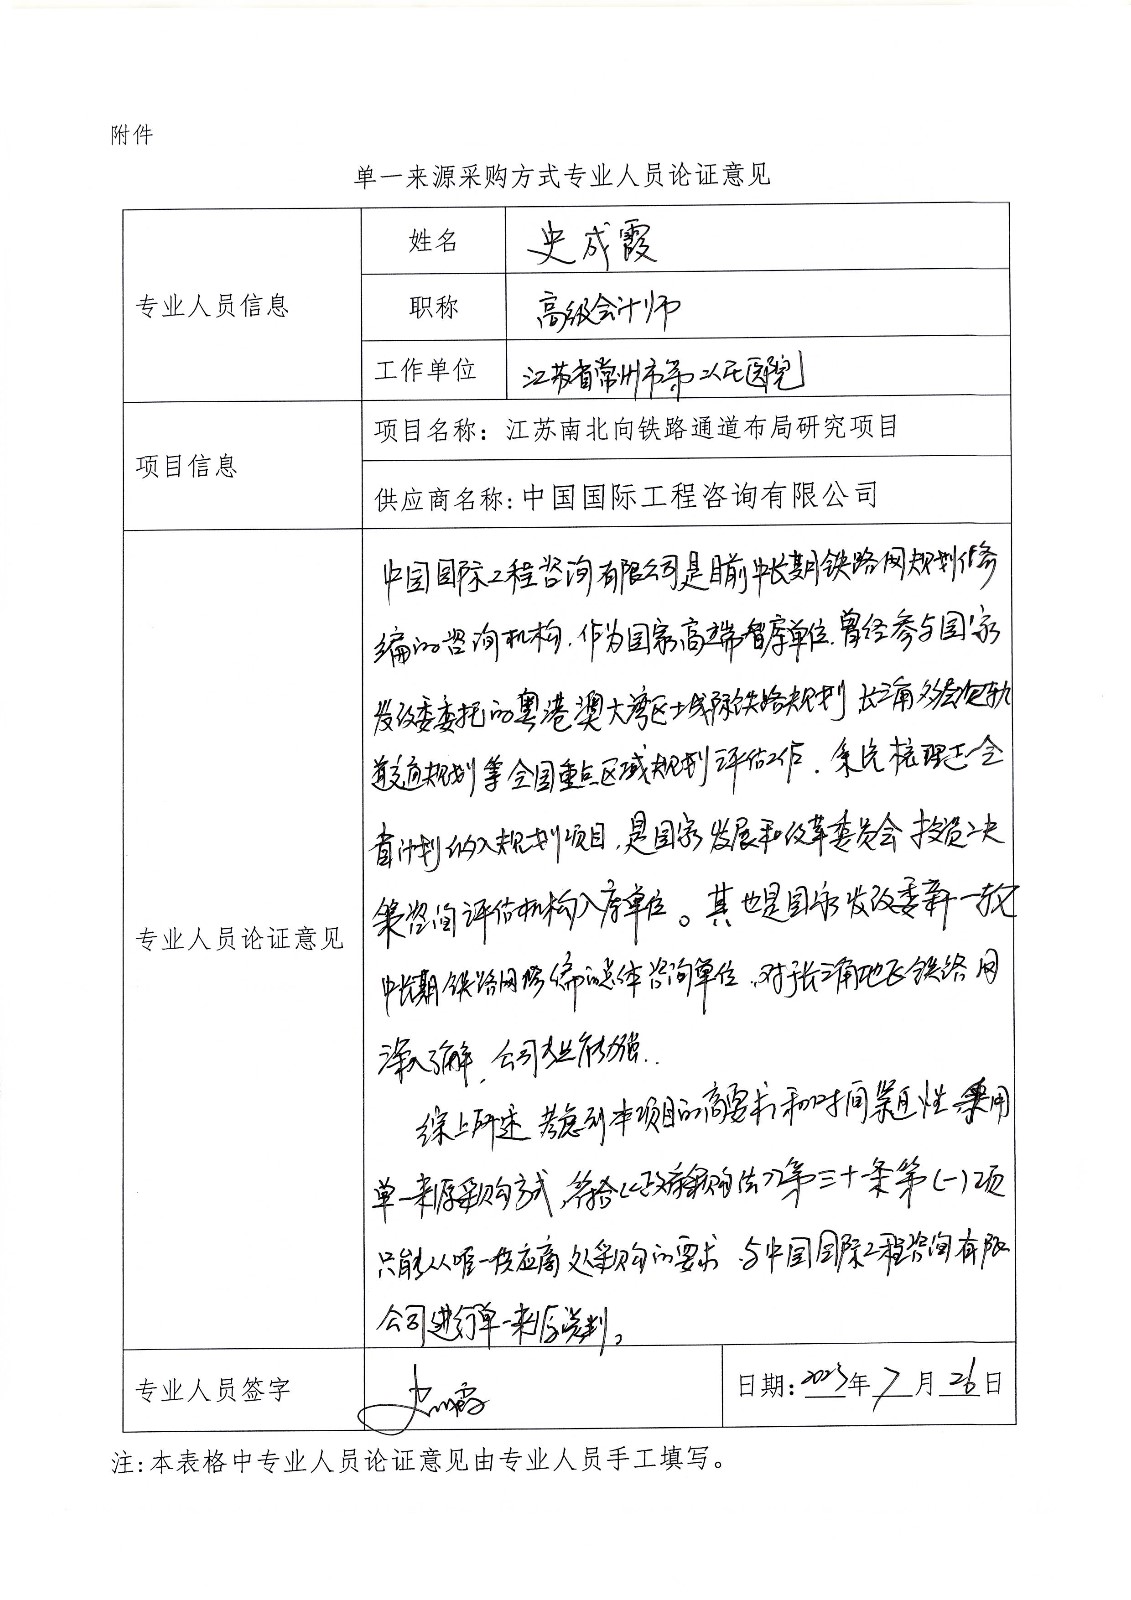 附件
单一来源采购方式专业人员论证意见
专业人员信息
姓名
史成霞
职称
高级会计师
工作单位
江苏省常州市第二人民医院
项目信息
项目名称：江苏南北向铁路通道布局研究项目
供应商名称：中国国际工程咨询有限公司
专业人员论证意见
中国国际工程咨询有限公司是目前中长期铁路网规划修
编的咨询机构，作为国家高端智库单位，曾经参与国家
发改委委托的粤港澳大湾区城际铁路规划，长三角多层次轨
道交通规划等全国重点区域规划评估工作，系统梳理过全
省计划纳入规划项目，是国家发展和改革委员会投资决
策咨询评估机构入库单位。其也是国家发改委新一轮
中长期铁路网修编的总体咨询单位，对于长三角地区铁路网
深入了解，公司专业能力强．
综上所述，考虑到本项目的高要求和时间紧迫性采用
单一来源采购方式，符合《政府采购法》第三十条第（一）项
只能从唯一供应商处采购的要求，与中国国际工程咨询有限
公司进行单一来源谈判。
专业人员签字
史成霞
日期：2023年7月26日
注：本表格中专业人员论证意见由专业人员手工填写。